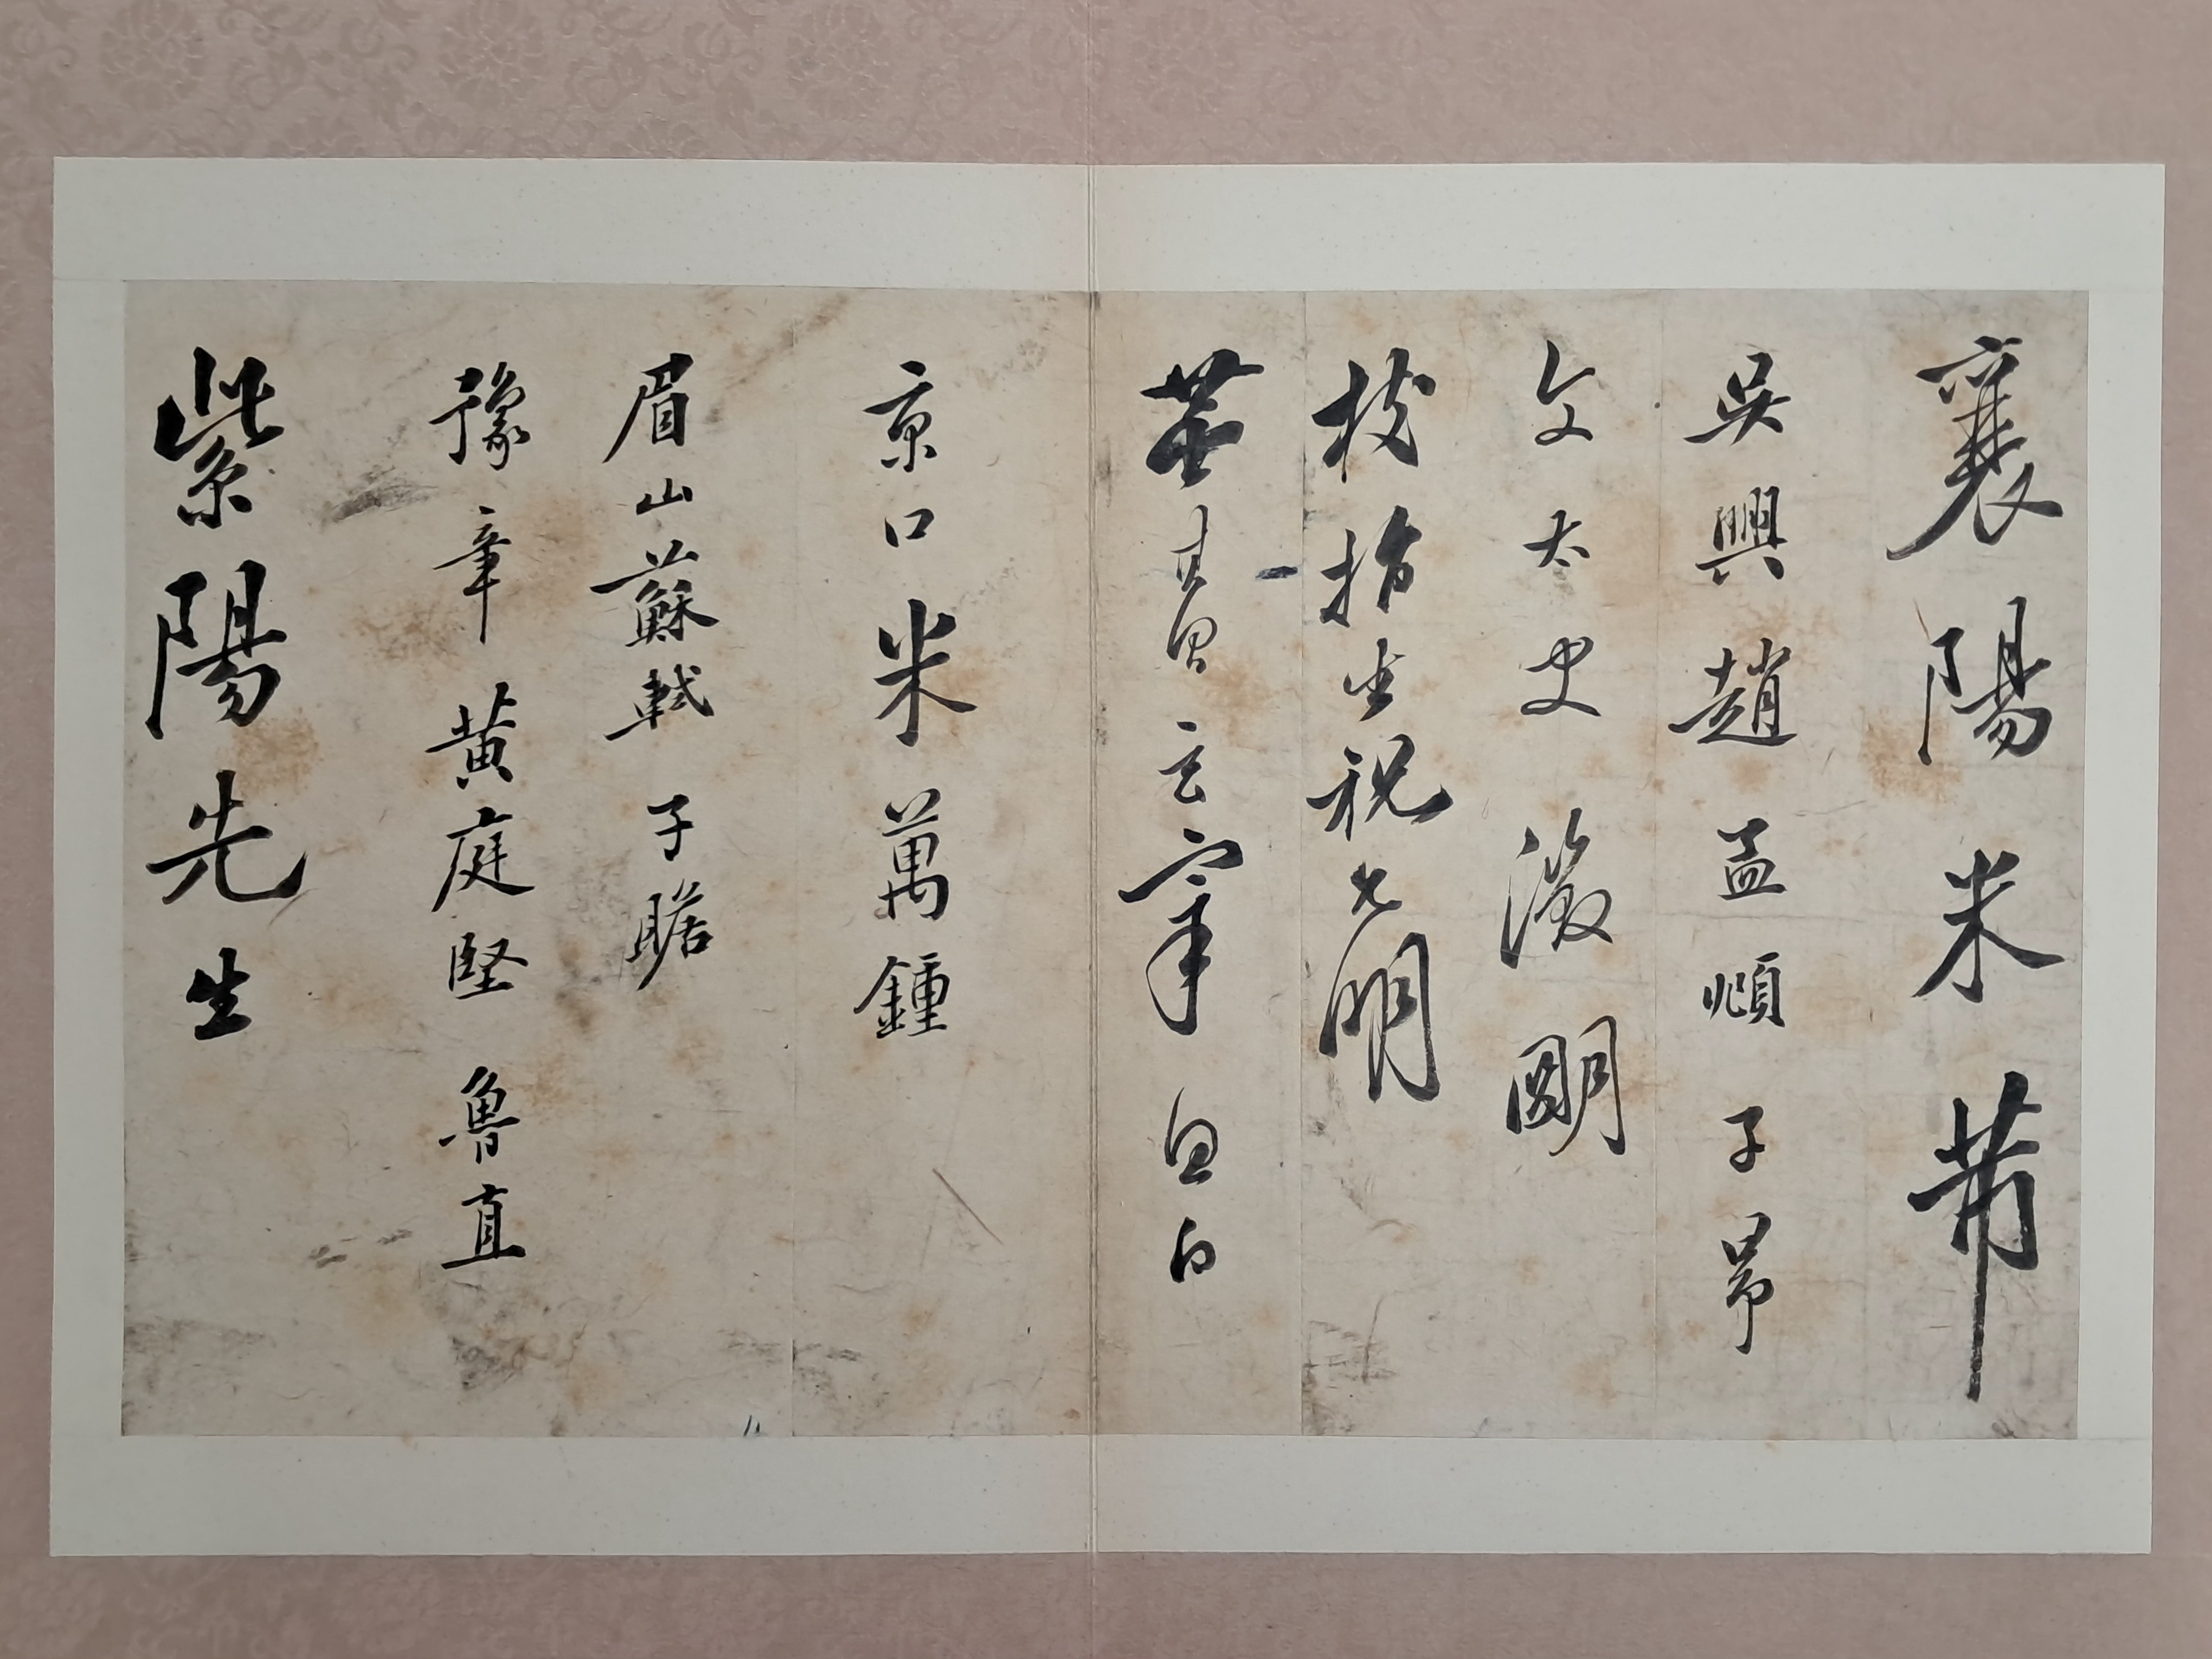 襄陽米芾
吳興趙孟頫子昂
文太史徵朙
枝指生祝允明
董其昌玄宰思白
京口米萬鍾
眉山蘇軾子瞻
豫章黃庭堅魯直
紫陽先生